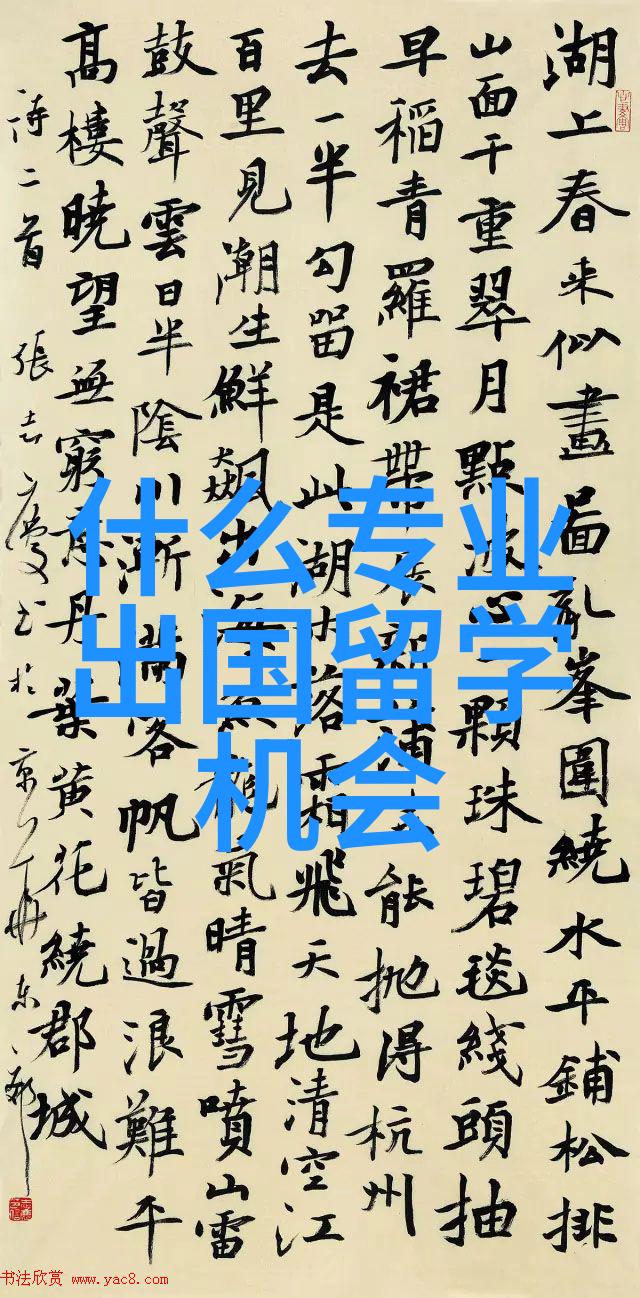 湖上春来似畫啚乱峯圍繞水平鋪松排
山面千重翠月點波心一顆珠碧毯綫頭抽
早稻青羅裙帶展新蒲未能抛得杭州
去一半勾留是此湖木落霜飛天地清空江
百里見潮生鮮飚出海魚龍氣晴雪噴山雷
鼓聲雲日半陰川漸滿客帆皆過浪難平
高樓曉望無窮意丹葉黄花繞郡城
詩二首 張志慶书於京
什么专业
出国留学
机会
书法欣赏 www.yac8.com